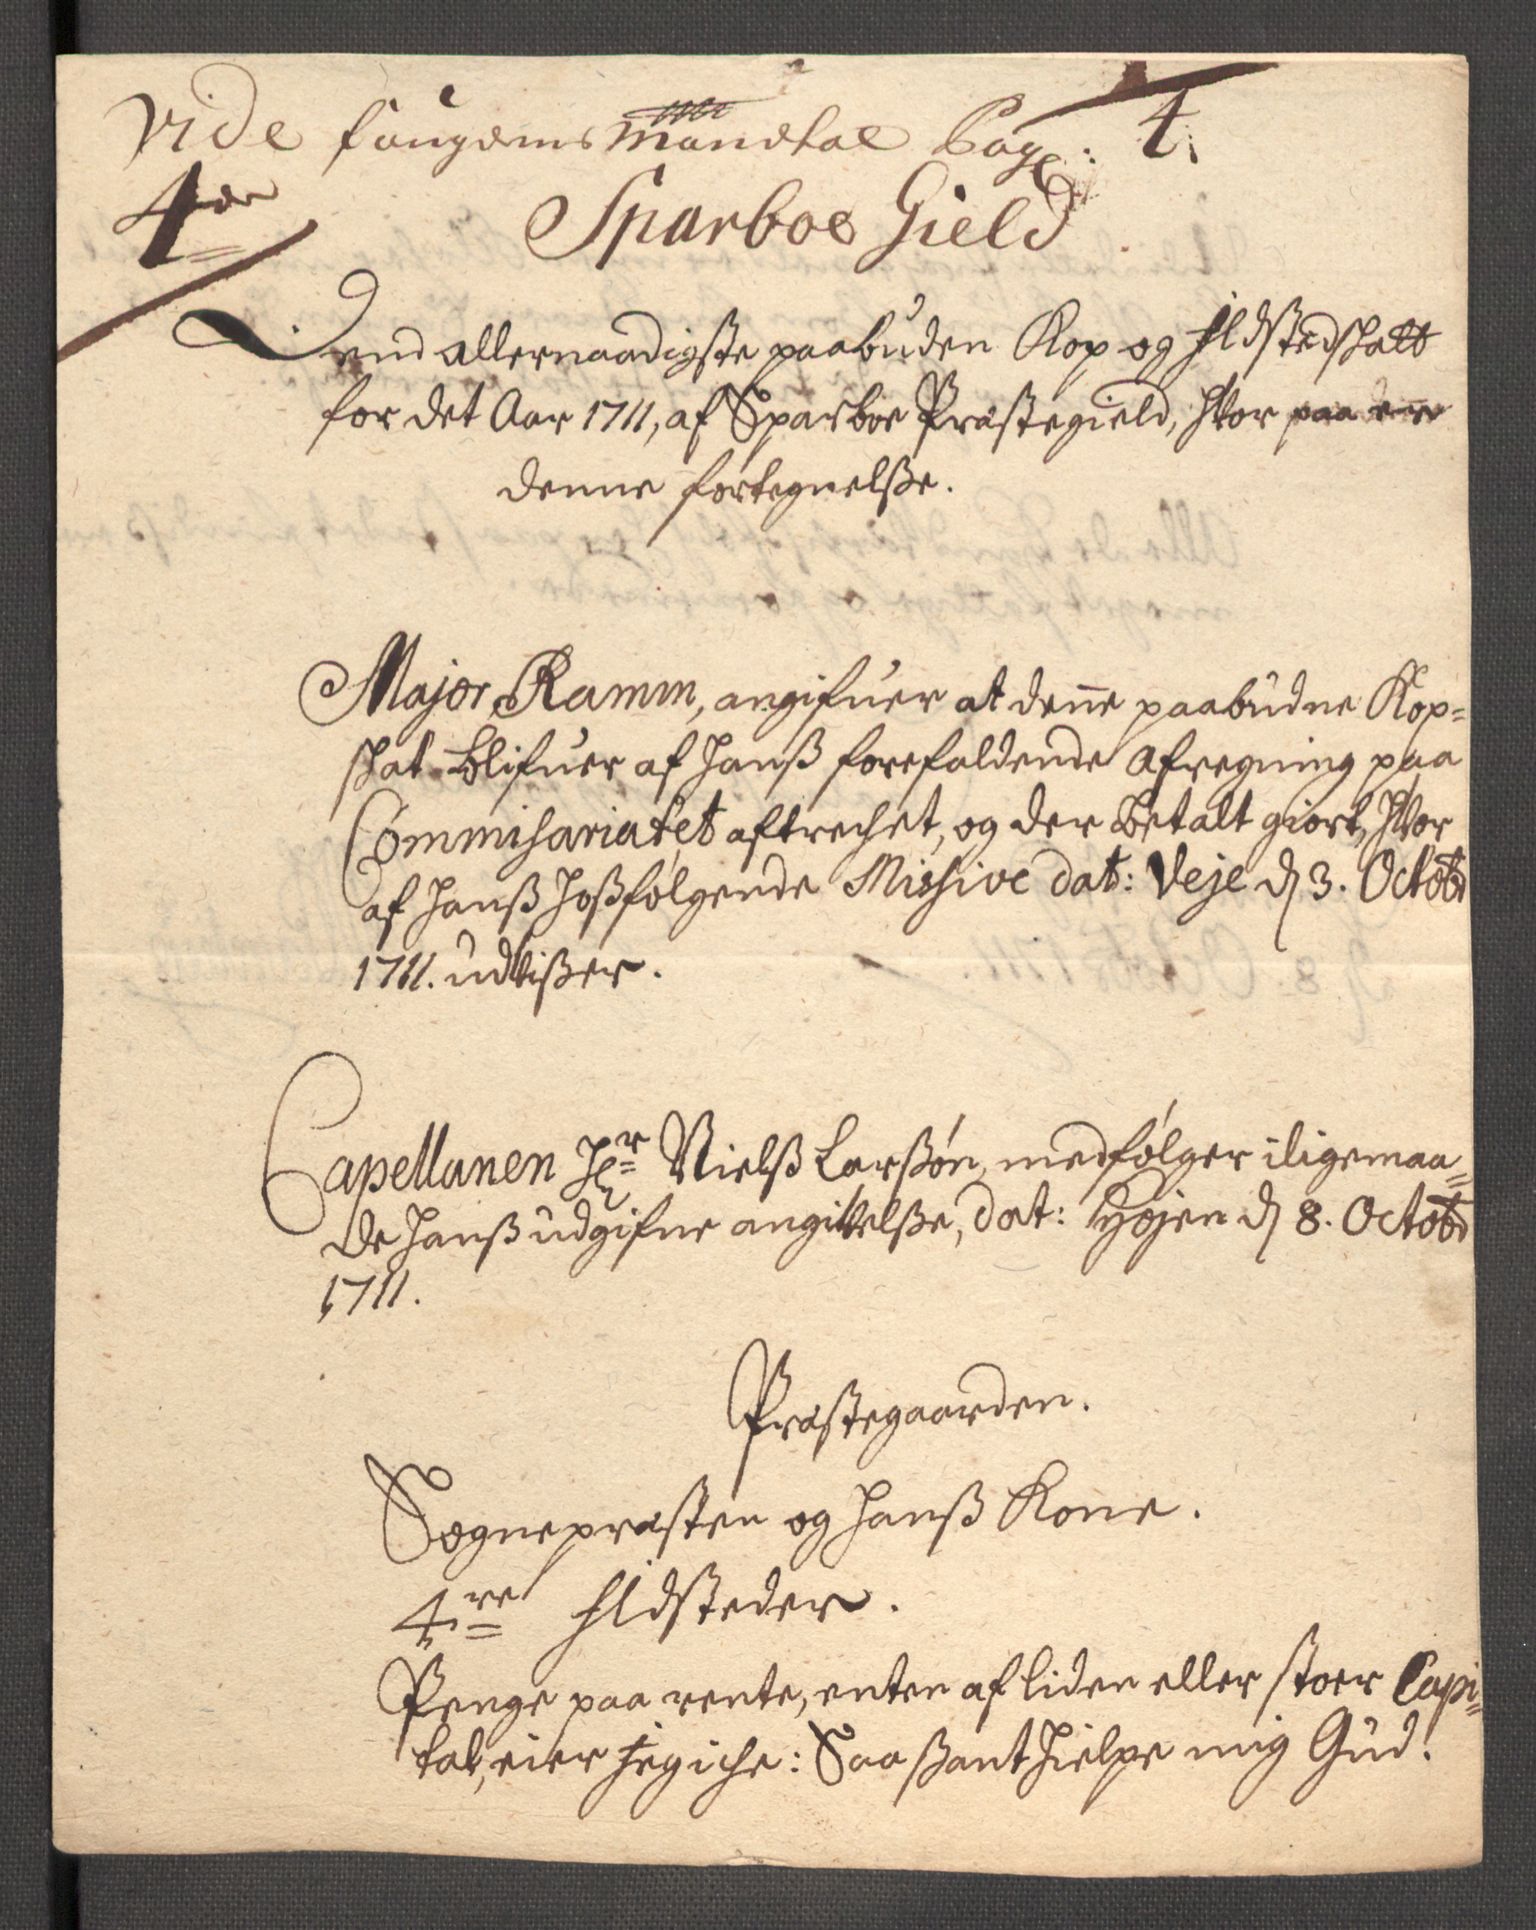 Vide fougdens Mandtal Pag: 4.
4de
Sparboe Gield
Dend allernaadigste paabuden Kop og Ildstedskatt
for det Aar 1711, af Sparboe Præstegield, hvor paa er
denne fortegnelsse.
Major Ramm, angifuer at denne paabudne Kop=
skat blifuer af hanss forefaldende afregning paa
Commisariatet aftrechet, og der betalt giort, hvor
af hanss hossfølgende Missive dat: Veje d 3. Octobr
1711. udvisser.
Capellanen Hr Nielss Larssøn, medfølger iligemaa=
de hanss udgifne angivelsse, dat: Højen d 8. Octobr
1711.
Præstegaarden.
Sognepræsten og hanss Kone.
4re Ildsteder.
Penge paa rente, enten af liden eller stoer Capi=
tal, eier jeg iche: Saa ssant hielpe mig Gud.